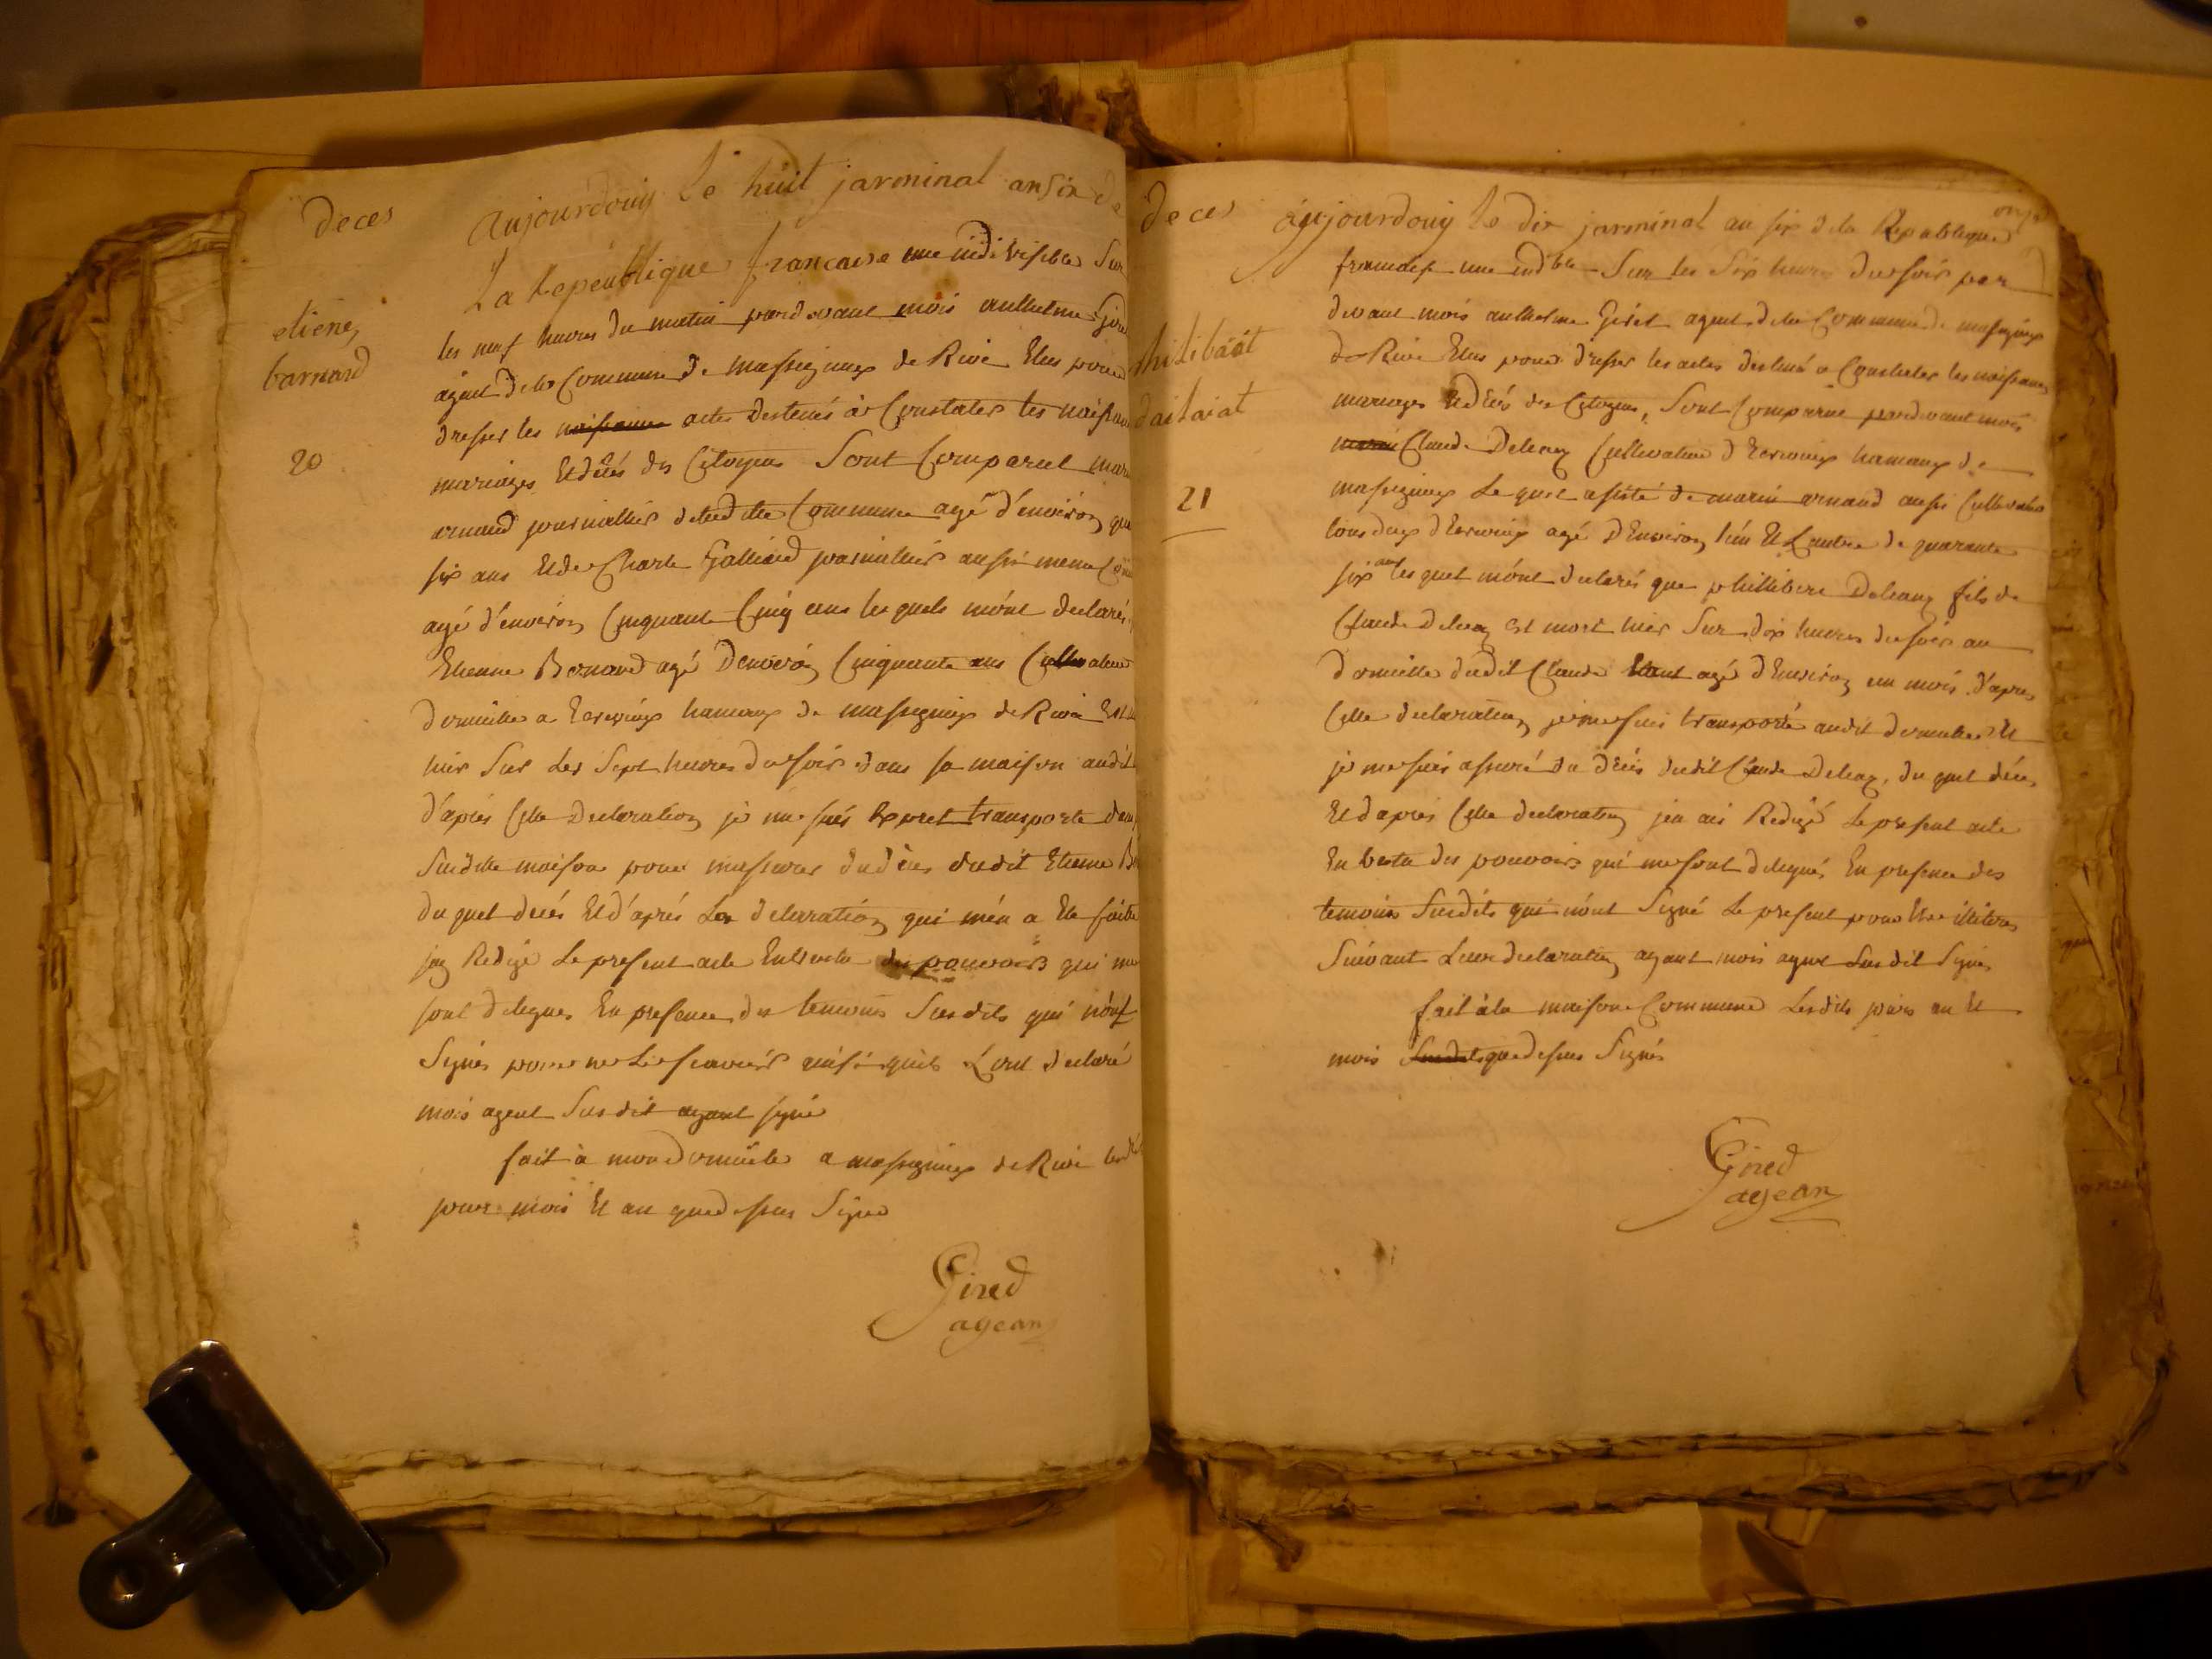 deces
etiene
barnard
20
aujourdouy le huit jarminal an six de
La republique francaise une indivisible Sur
les neuf heures du matin pardevant mois anthelme Gire
agent dela Commune de massigneux de Rive Elus pour
dresser les naissances actes destinés à Constater les naissan
mariages et décés des Citoyens Sont Comparut mar
arnaud journallier deladitte Commune agé d'environ qua
six ans et de Charle Galliard journallier aussi meme Com
agé d'environ Cinquante Cinq ans les quels m'ónt declarés
Etienne Bernard agé d'environ Cinquante ans Cultivateur
domicilié a hameaux de massigneux de Rive Est
hier Sur les Sept heures du soir dans sa maison audit
d'aprés Cette Declaration je me suis Expret transporte dans
Susditte maison pour massurer du deces dudit Etienne B
du quel decés et d'aprés La declaration qui m'en a Ete faitte
jay Redigé le present acte En vertu des pouvoirs qui me
sont delegues En presence des temoins Susdits qui n'ónt
Signés pour ne le scavoir ainsi quils L'ont declaré
mois agent Susdit ayant signé
fait à mon domicile a massigneux de Rive lesd
jour mois et an que dessus Signé
Gired
agean
deces
philibaöt
dailaiat
21
onze
aujourdouy le dix jarminal an six dela Republique
francaise une indble Sur les Six heures du soir par
devant mois anthelme Giret agent dela Commune de massigneux
de Rive Elus pour dresser les actes destiné a Constater les naissances
mariages et décés des Citoyens, Sont Comparue pardevant mois
marie Claude Deleaz Cultivateur d hameaux de
massigneux Le quel assisté de marin arnaud aussi Cultivateur
tous deux d agé d'Environ l'un et L'autre de quarante
six ans les quel m'ónt declarés que phillibere Deleaz fils de
Claude Deleaz est mort hier Sur dix heures du soir au
domicille dudit Claude Etant agé d'Environ un mois d'apres
Cette declaration je me suis transporté audit domicille et
je me suis assuré du décés dudit Claude Deleaz, du quel décés
Et d'apres Cette declaration jen ais Redigé Le present acte
En vertu des pouvoirs qui me sont delegués En presence des
temoins Susdits qui n'ónt Signé le present pour Etre illiteres
Suivant Leur declaration ayant mois agent Susdit Signé
fait à la maison Commune Lesdits jours an et
mois Susdits que dessus Signés
Gired
agean